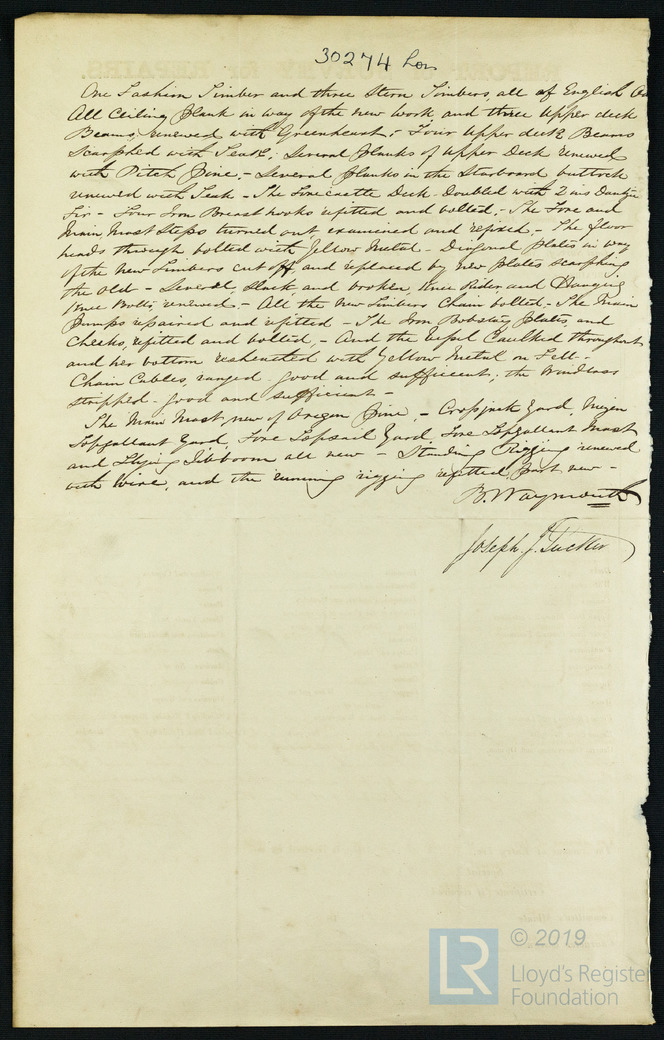 30274 Lon
One Fashion Timber and three Stern Timbers, all of English
All Ceiling plank in way of the new work, and three upper deck
Beams, renewed with Greenheart; Four upper deck Beams
scarphed with Teak; Several planks of upper Deck renewed
with Pitch Pine, - Several planks in the Starboard buttock
renewed with Teak - The Forecastle Deck doubled with 2 ins Dantzic
Fir - Four Iron Breast hooks refitted and bolted; - The Fore and
Main Mast Steps turned out examined and refixed, - The floor
heads through bolted with Yellow Metal - Diagonal plates in way
of the new Timbers cut off and replaced by new plates scarphing
the old - Several, slack and broken, Knee Rider, and Hanging
Knee Bolts, renewed - All the new Timbers Chain bolted - The Main
Pumps repaired and refitted - The Iron Bobstay plates, and
Cheeks, refitted and bolted, - And the vessel Caulked throughout
and her bottom resheathed with Yellow Metal on Felt -
Chain Cables, ranged good and sufficient; the Windlass
stripped good and sufficient -
The Main Mast, new of Oregon Pine, - Crossjack Yard, Mizen
Topgallant Yard, Fore Topsail Yard, Fore Topgallant Mast
and Flying Jibboom all new - Standing Rigging renewed
with Wire, and the running rigging refitted, Part new -
B. Waymouth
Joseph. J. Tucker
© 2019
LR
Lloyd's Register
Foundation